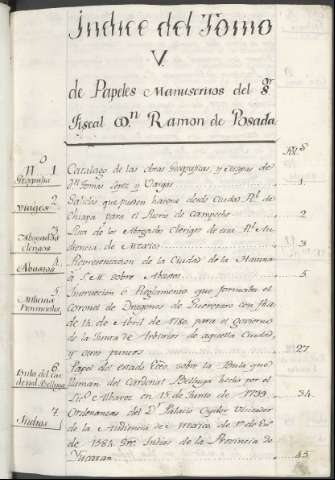 Indice del Tomo
V.
de Papeles Manuscritos del Sr
Fiscal Dn Ramon de Posada
Fol.s
No 1
Geografia
Catalogo de las obras Geograficas, y Mapas de
Dn Tomas Lopez y Vargas 1
2
Viages
Salidas que pueden hacerse desde Ciudad Rl de
Chiapa para el Puerto de Campeche 2
3
Abogados
Clerigos
Lista de los Abogados Clerigos de esta Rl Au
diencia de Mexico 3
4
Abastos
Representacion de la Ciudad de la Havana
a S. M. sobre Abastos 5
5
Milicias
Provinciales
Instruccion ó Reglamento que formaba el
Coronel de Dragones de Queretaro con fha
de 14 de Abril de 1780 para el govierno
de la Junta de Arbitrios de aquella Ciudad,
y otros puntos 27
6
Bula del Car
denal Belluga
Papel de estado Ecco sobre la Bula que
llaman del Cardenal Belluga hecho por el
Licdo Alvarez en 15 de Junio de 1739 34
7
Indios
Ordenanzas del Dr Palacio Oydor Visitador
de la Audiencia de Mexico
de 1584 Indios de la Provincia de
Yucatan 45